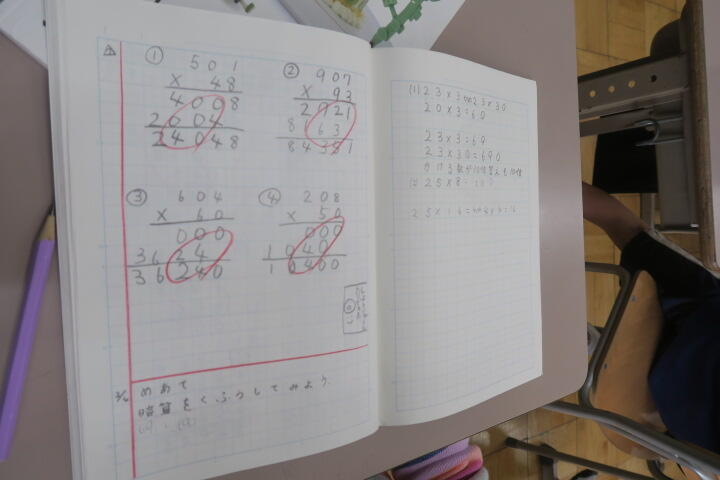 ①
501
× 48
4008
2004
24048
②
907
× 93
2721
8163
84351
③
604
× 60
000
3624
36240
④
208
× 50
000
1040
10400
めあて
暗算をくふうしてみよう.
(1) 23×3 23×30
20×3=60
23×3=69
23×30=690
かける数が10倍 答えも10倍
(2) 25×8=
25×16=